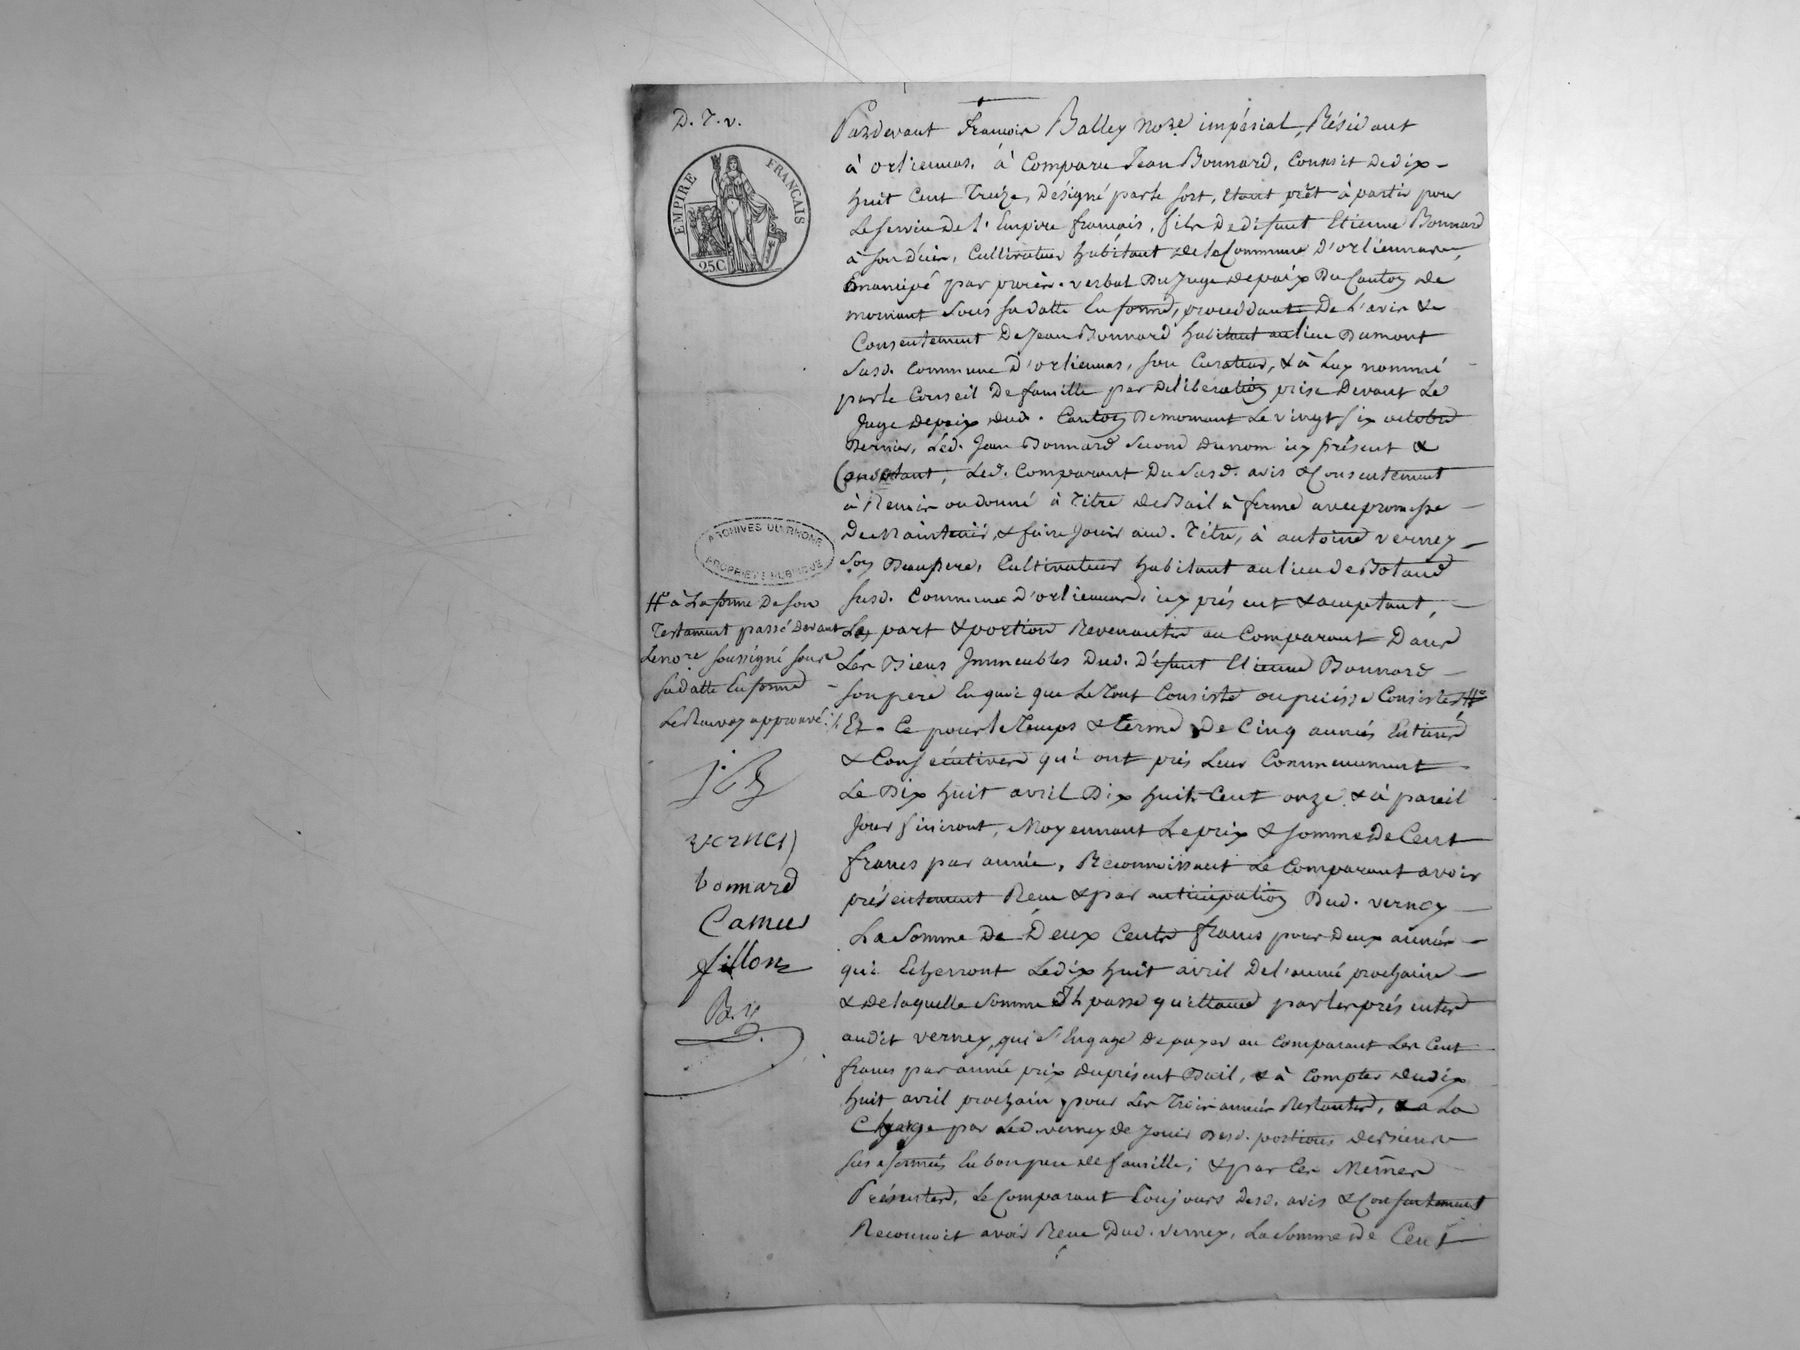 D. T. v.
EMPIRE FRANÇAIS
25C
Pardevant François Balley Nore. impérial, Résidant
à orlienas, à Comparu Jean Bonnard, Conscrit de dix-
huit Cent Treize, Désigné par le sort, étant prêt à partir pour
Le service de l'Empire français, fils De défunt Etienne Bonnard
à son décès, Cultivateur habitant de la Commune D'orlienas,
Emancipé par procès-verbal Du Juge de paix Du Canton de
mornant Sous sa datte En forme, procédant De l'avis &
Consentement De Jean Bonnard habitant au lieu Dumont
Susd. Commune D'orlienas, son Curateur, & à Luy nommé
par le Conseil De famille par Délibération prise Devant Le
Juge de paix dud. Canton De mornant Le vingt six octobre
Dernier, Led. Jean Bonnard Second du nom icy présent &
Consentant, Led. Comparant Du Susd. avis & Consentement
à Remis ou donné à Titre de Bail à ferme avec promesse
De Maintenir, & faire Jouir aud. Titre, à antoine verney
Son Beaupere, Cultivateur habitant au lieu de Boland
susd. Commune D'orlienas, icy présent & acceptant,
La part & portion Revenante au Comparant Dans
Les Biens Immeubles Dud. Défunt Etienne Bonnard
son pere En quoi que Le Tout Consiste ou puisse Consister #
Et - Ce pour le Temps & terme De Cinq années Entieres
& Consécutives qui ont pris Leur Commencement
Le Dix huit avril Dix huit Cent onze & à pareil
Jour finiront, Moyennant Le prix & somme De Cent
francs par année, Reconnoissant Le Comparant avoir
présentement Recu & par anticipation Dud. verney
La Somme De Deux Cents francs pour Deux années
qui Echerront Le dix huit avril De l'année prochaine
& de laquelle Somme Il passe quittance par les présentes
audit verney, qui s'Engage De payer au Comparant Les Cent
francs par année prix du présent Bail, & à Compter du dix
huit avril prochain pour Les Trois années Restantes, & a La
Charge par Led. verney de Jouir Desd. portions de Biens
sus affermés En bon pere de famille; & par Les Mêmes
Présentes, Le Comparant Toujours Desd. avis & Consentement
Reconnoit avoir Recu Dud. verney, La Somme de Cent
ARCHIVES DU RHONE
PROPRIÉTÉ PUBLIQUE
# à La forme De son
Testament passé devant
Le nore soussigné sous
sa datte En forme
Le Renvoy approuvé
J. B
verney
bonnard
Camus
fillon
Bey